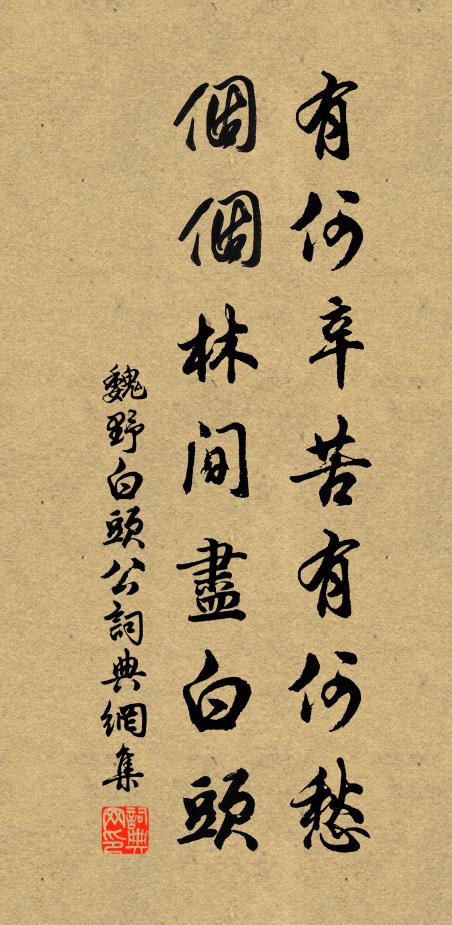 有何辛苦有何愁
個個林間盡白頭
魏野白頭公詞典網集
詞典網印